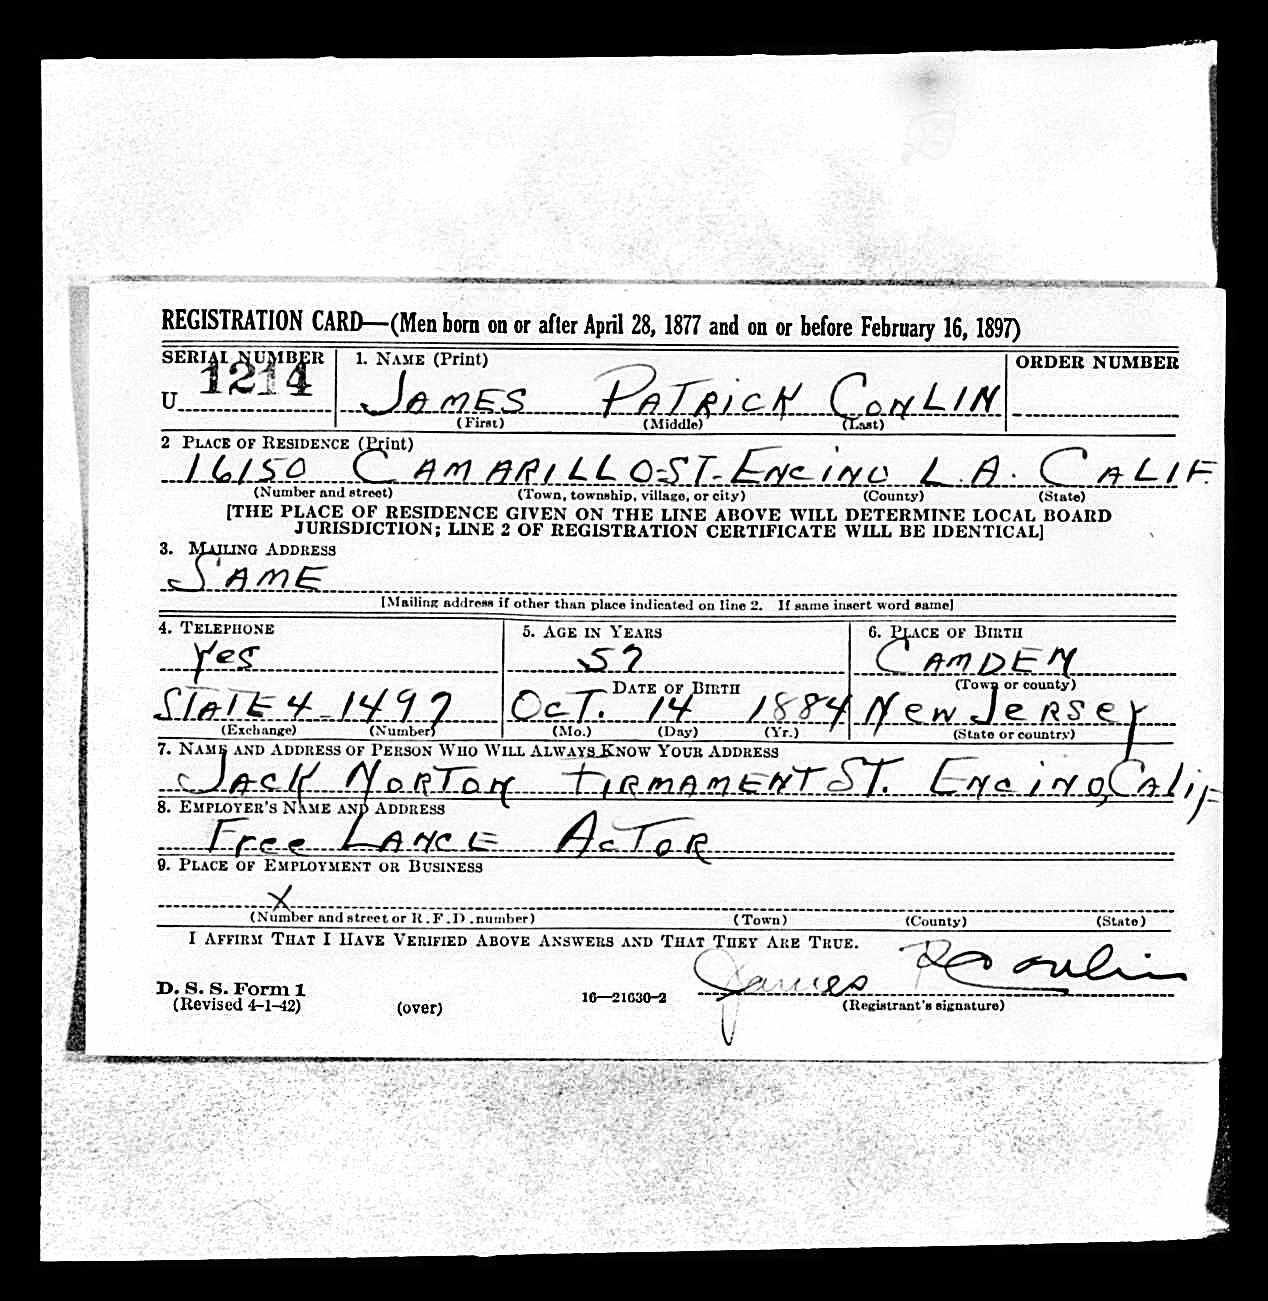 REGISTRATION CARD—(Men born on or after April 28, 1877 and on or before February 16, 1897)
SERIAL NUMBER 1. NAME (Print) ORDER NUMBER
U 1214 JAMES PATRICK CONLIN
(First) (Middle) (Last)
2 PLACE OF RESIDENCE (Print)
16150 CAMARILLO-ST- ENCINO L.A. CALIF.
(Number and street) (Town, township, village, or city) (County) (State)
[THE PLACE OF RESIDENCE GIVEN ON THE LINE ABOVE WILL DETERMINE LOCAL BOARD
JURISDICTION; LINE 2 OF REGISTRATION CERTIFICATE WILL BE IDENTICAL]
3. MAILING ADDRESS
SAME
[Mailing address if other than place indicated on line 2. If same insert word same]
4. TELEPHONE 5. AGE IN YEARS 6. PLACE OF BIRTH
Yes 57 CAMDEN
DATE OF BIRTH (Town or county)
STATE 4-1497 OCT. 14 1884 New Jersey
(Exchange) (Number) (Mo.) (Day) (Yr.) (State or country)
7. NAME AND ADDRESS OF PERSON WHO WILL ALWAYS KNOW YOUR ADDRESS
JACK NORTON FIRMAMENT ST. ENCINO, CALIF
8. EMPLOYER'S NAME AND ADDRESS
Free LANCE ACTOR
9. PLACE OF EMPLOYMENT OR BUSINESS
X
(Number and street or R.F.D. number) (Town) (County) (State)
I AFFIRM THAT I HAVE VERIFIED ABOVE ANSWERS AND THAT THEY ARE TRUE.
James P Conlin
D. S. S. Form 1
(Revised 4-1-42) (over) 16—21630-2 (Registrant's signature)